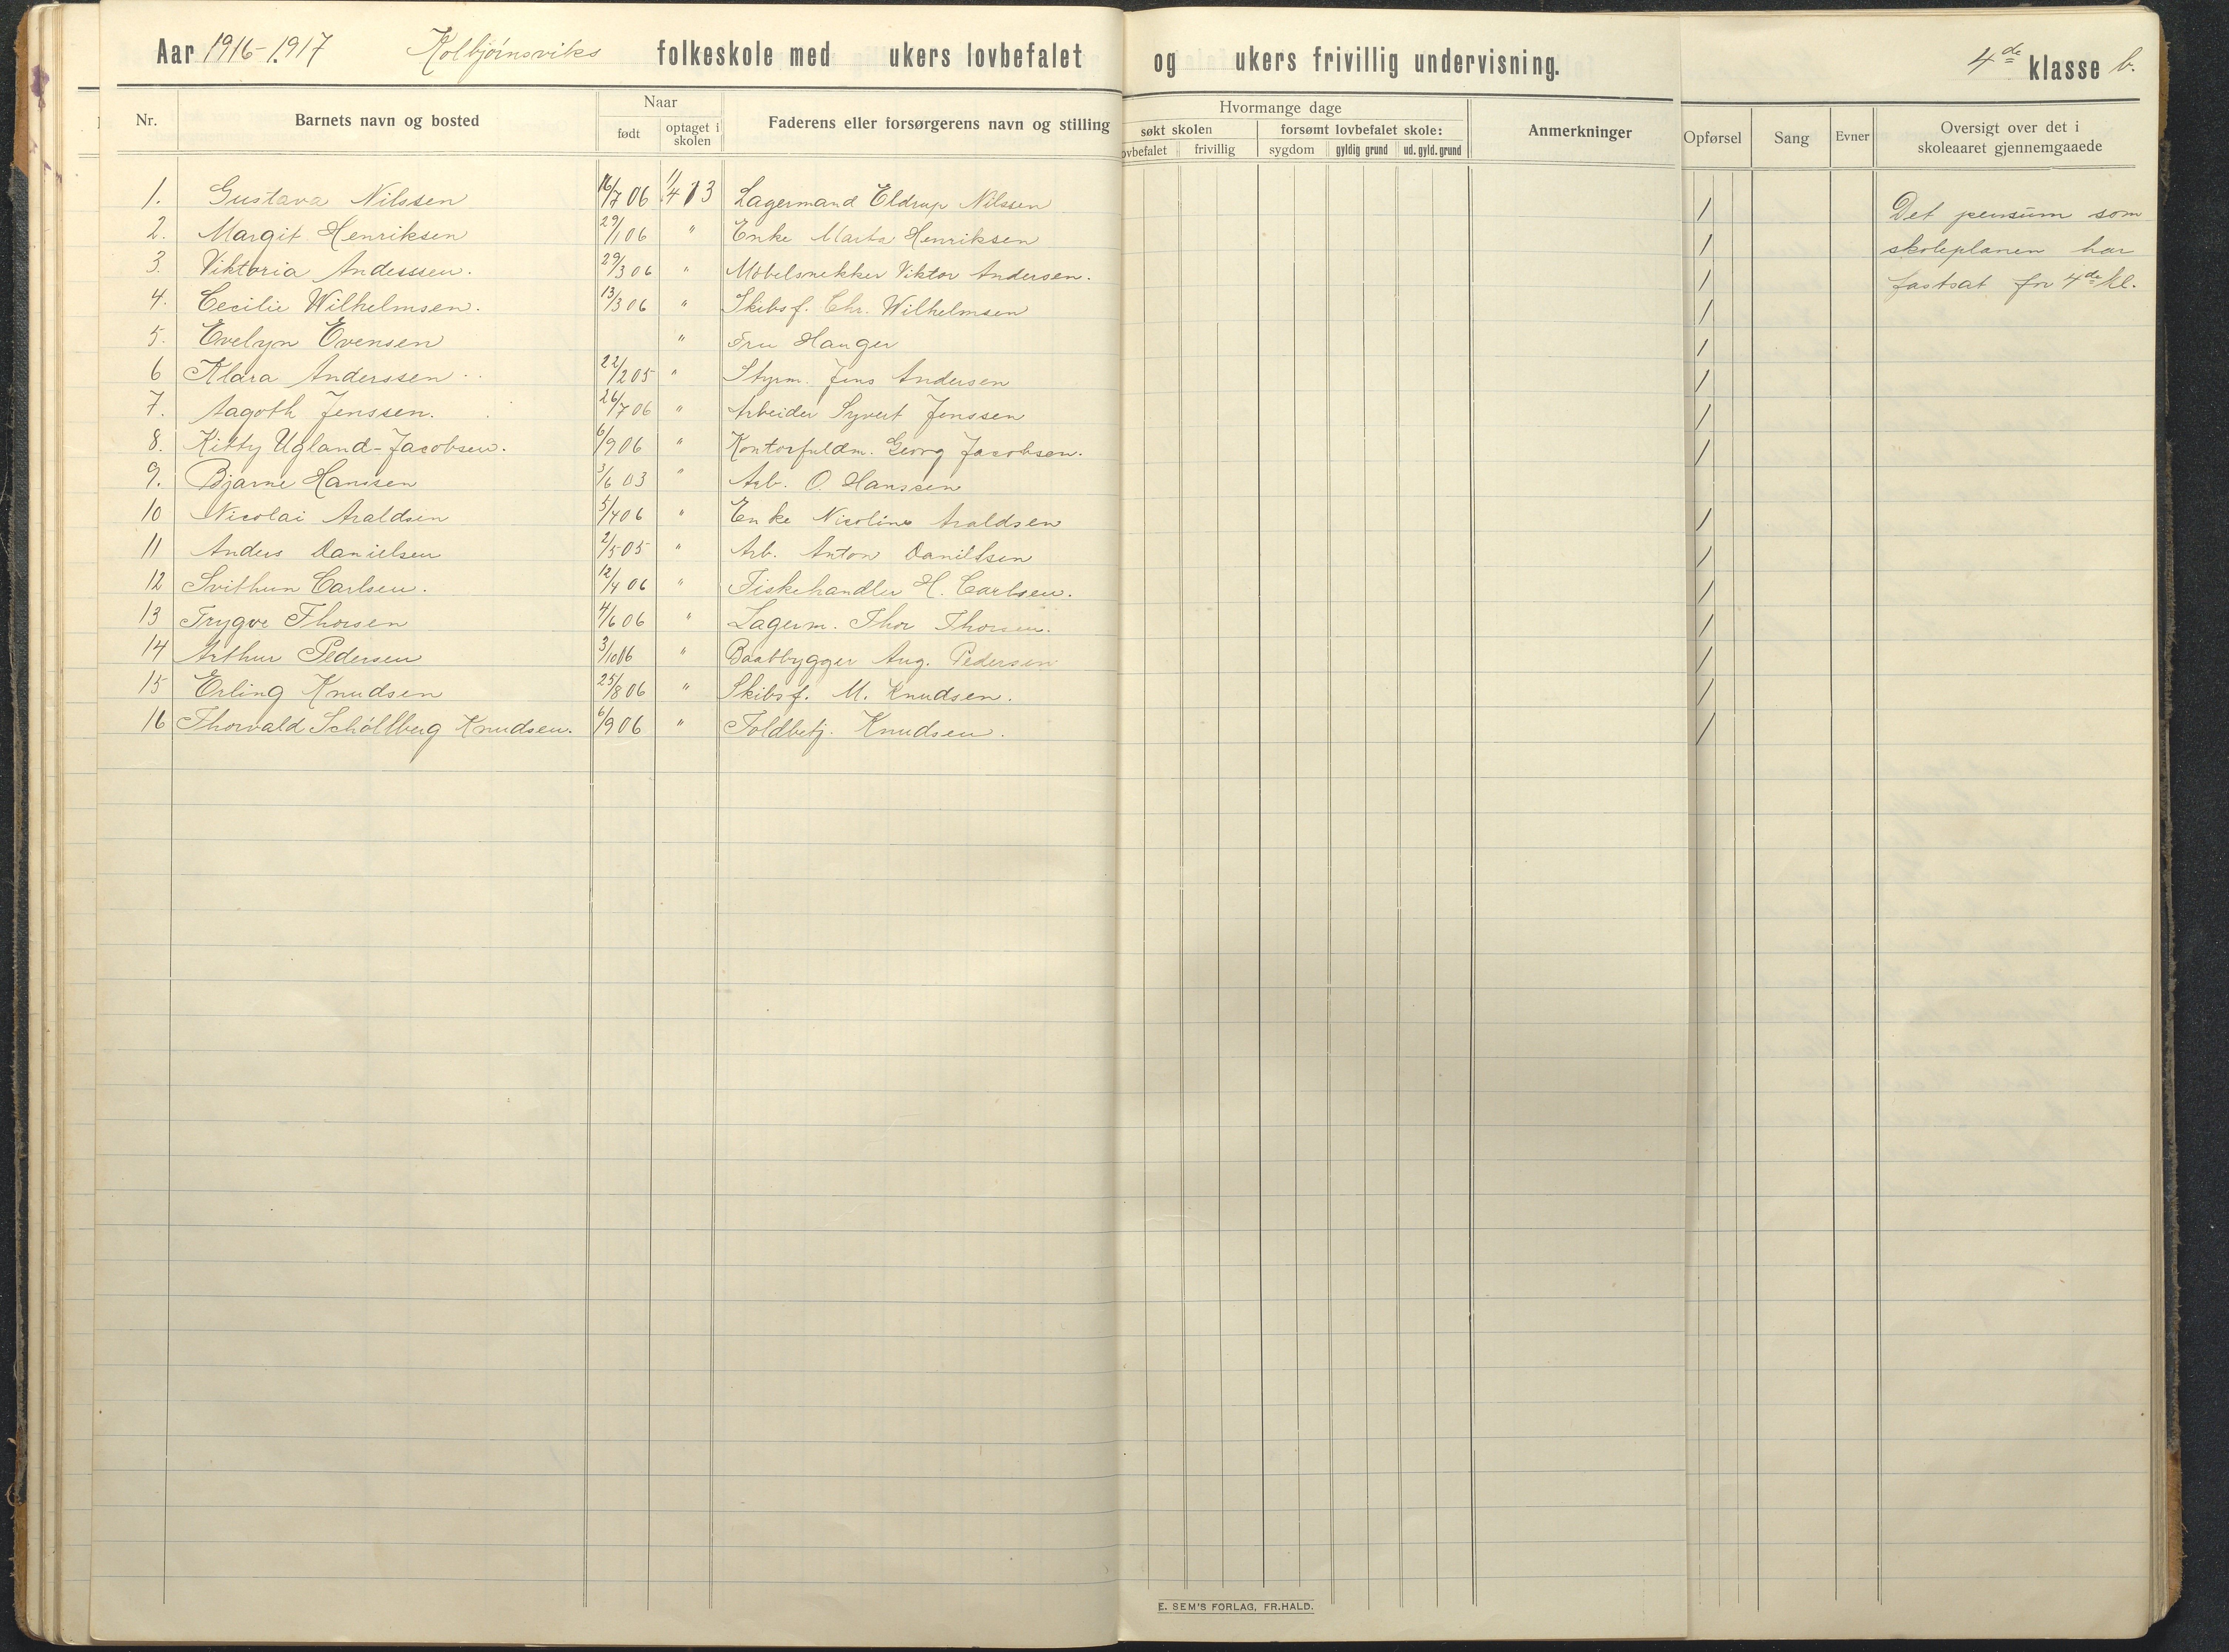 Aar 1916-1917 Kolbjørnsviks folkeskole med ukers lovbefalet og ukers frivillig undervisning. 4de klasse b.
Nr. Barnets navn og bosted Naar Faderens eller forsørgerens navn og stilling Hvormange dage Anmerkninger Opførsel Sang Evner Oversigt over det i skoleaaret gjennemgaaede
født optaget i skolen søkt skolen forsømt lovbefalet skole:
ovbefalet frivillig sygdom gyldig grund ud. gyld. grund
1. Gustava Nilssen 16/7 06 11/4 13 Lagermand Eldrup Nilssen / Det pensum som
2. Margit Henriksen 29/11 06 " Enke Marta Henriksen / skoleplanen har
3. Viktoria Anderssen. 29/3 06 " Møbelsnekker Viktor Andersen. / fastsat for 4de kl.
4. Cecilie Wilhelmsen. 13/3 06 " Skibsf. Chr. Wilhelmsen /
5. Evelyn Evensen " Fru Hanger /
6 Klara Anderssen 22/2 05 " Styrm. Jens Andersen /
7. Aagoth Jenssen. 26/7 06 " Arbeider Syvert Jenssen /
8. Kitty Ugland-Jacobsen. 6/9 06 " Kontorfuldm. Georg Jacobsen. /
9. Bjarne Hanssen 3/6 03 " Arb. O. Hanssen
10 Nicolai Araldsen 5/4 06 " Enke Nicoline Araldsen /
11 Anders Danielsen 2/5 05 " Arb. Anton Danielsen /
12 Svithun Carlsen. 12/4 06 " Fiskehandler H. Carlsen. /
13 Trygve Thorsen 4/6 06 " Lagerm. Thor Thorsen. /
14 Arthur Pedersen 3/10 06 " Baatbygger Aug. Pedersen /
15 Erling Knudsen 25/8 06 " Skibsf. M. Knudsen. /
16 Thorvald Schöllberg Knudsen. 6/9 06 " Toldbetj. Knudsen. /
E. SEM'S FORLAG, FR.HALD.